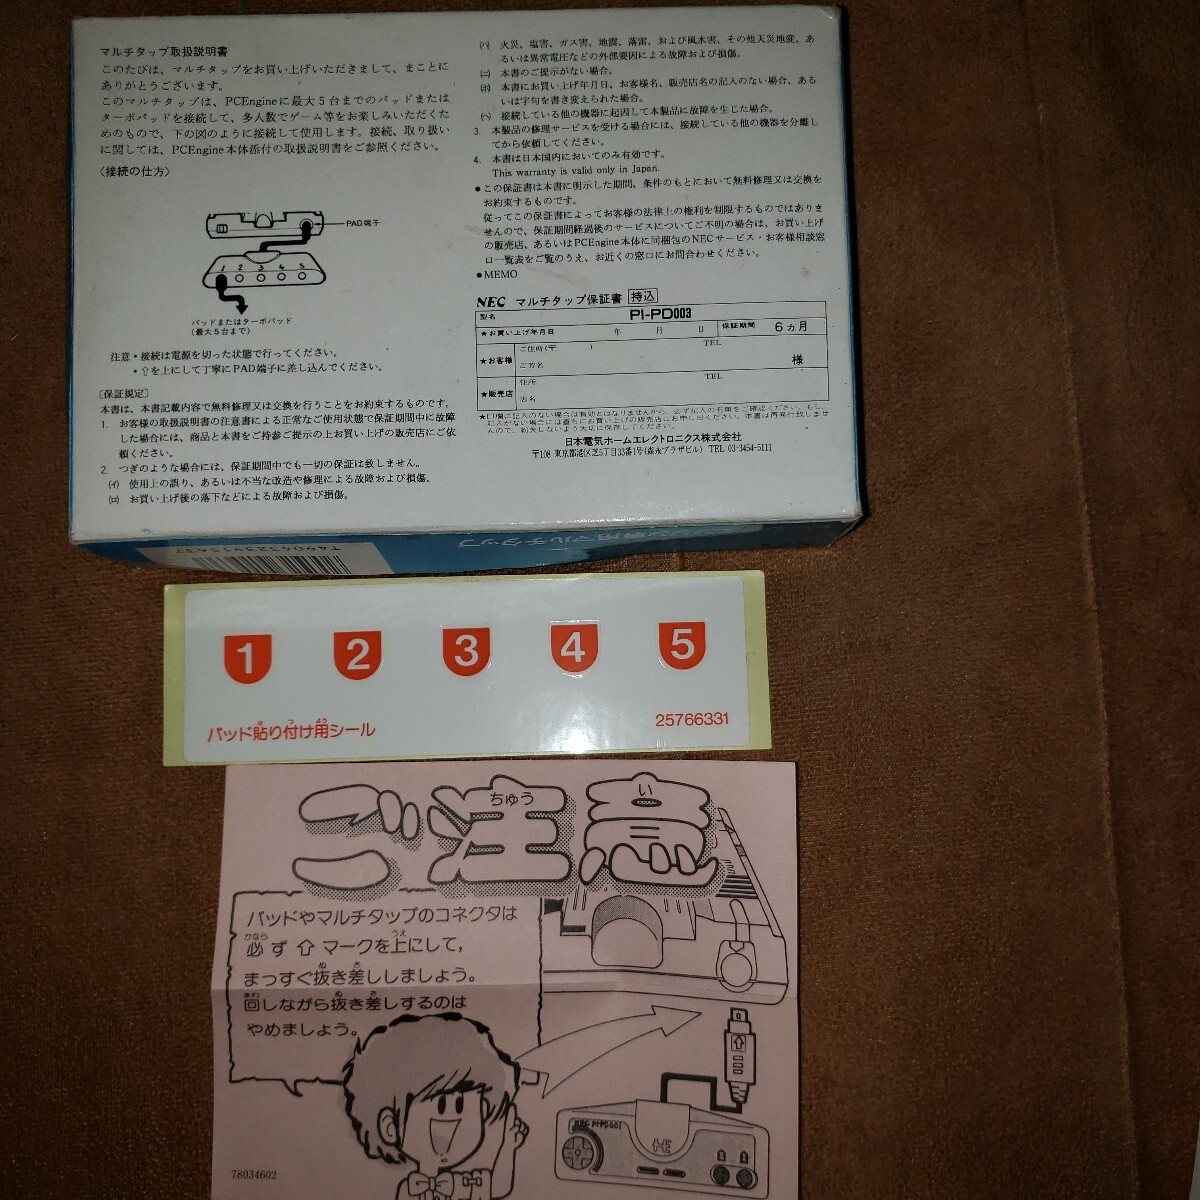 マルチタップ取扱説明書
このたびは、マルチタップをお買い上げいただきまして、まことに
ありがとうございます。
このマルチタップは、PCEngineに最大5台までのパッドまたは
ターボパッドを接続して、多人数でゲーム等をお楽しみいただくた
めのもので、下の図のように接続して使用します。接続、取り扱い
に関しては、PCEngine本体添付の取扱説明書をご参照ください。
〈接続の仕方〉
PAD端子
1 2 3 4 5
パッドまたはターボパッド
(最大5台まで)
注意・接続は電源を切った状態で行ってください。
・⇧を上にして丁寧にPAD端子に差し込んでください。
〔保証規定〕
本書は、本書記載内容で無料修理又は交換を行うことをお約束するものです。
1. お客様の取扱説明書の注意書による正常なご使用状態で保証期間中に故障
した場合には、商品と本書をご持参ご提示の上お買い上げの販売店にご依
頼ください。
2. つぎのような場合には、保証期間中でも一切の保証は致しません。
(イ) 使用上の誤り、あるいは不当な改造や修理による故障および損傷。
(ロ) お買い上げ後の落下などによる故障および損傷。
(ハ) 火災、塩害、ガス害、地震、落雷、および風水害、その他天災地変、あ
るいは異常電圧などの外部要因による故障および損傷。
(ニ) 本書のご提示がない場合。
(ホ) 本書にお買い上げ年月日、お客様名、販売店名の記入のない場合、ある
いは字句を書き変えられた場合。
(ヘ) 接続している他の機器に起因して本製品に故障を生じた場合。
3. 本製品の修理サービスを受ける場合には、接続している他の機器を分離し
てから依頼してください。
4. 本書は日本国内においてのみ有効です。
This warranty is valid only in Japan.
●この保証書は本書に明示した期間、条件のもとにおいて無料修理又は交換を
お約束するものです。
従ってこの保証書によってお客様の法律上の権利を制限するものではありま
せんので、保証期間経過後のサービスについてご不明の場合は、お買い上げ
の販売店、あるいはPCEngine本体に同梱包のNECサービス・お客様相談窓
口一覧表をご覧のうえ、お近くの窓口にお問合わせください。
●MEMO
NEC マルチタップ保証書 持込
型名 PI-PD003
★お買い上げ年月日 年 月 日 保証期間 6ヵ月
★お客様 ご住所(〒 ) TEL
ご芳名 様
★販売店 住所 TEL
店名
★印欄に記入のない場合は有効とはなりませんから、必ず記入の有無をご確認ください。もし、
記入がない場合は直ちにお買い上げの販売店にお申し出ください。本書は再発行致しませ
んので、紛失しないよう大切に保存してください。
日本電気ホームエレクトロニクス株式会社
〒108 東京都港区芝5丁目33番1号(森永プラザビル) TEL 03-3454-5111
専用マルチタップ
1 2 3 4 5
パッド貼り付け用シール
25766331
ご注意
パッドやマルチタップのコネクタは
必ず⇧マークを上にして、
まっすぐ抜き差ししましょう。
回しながら抜き差しするのは
やめましょう。
NEC PI-PD001
78034602